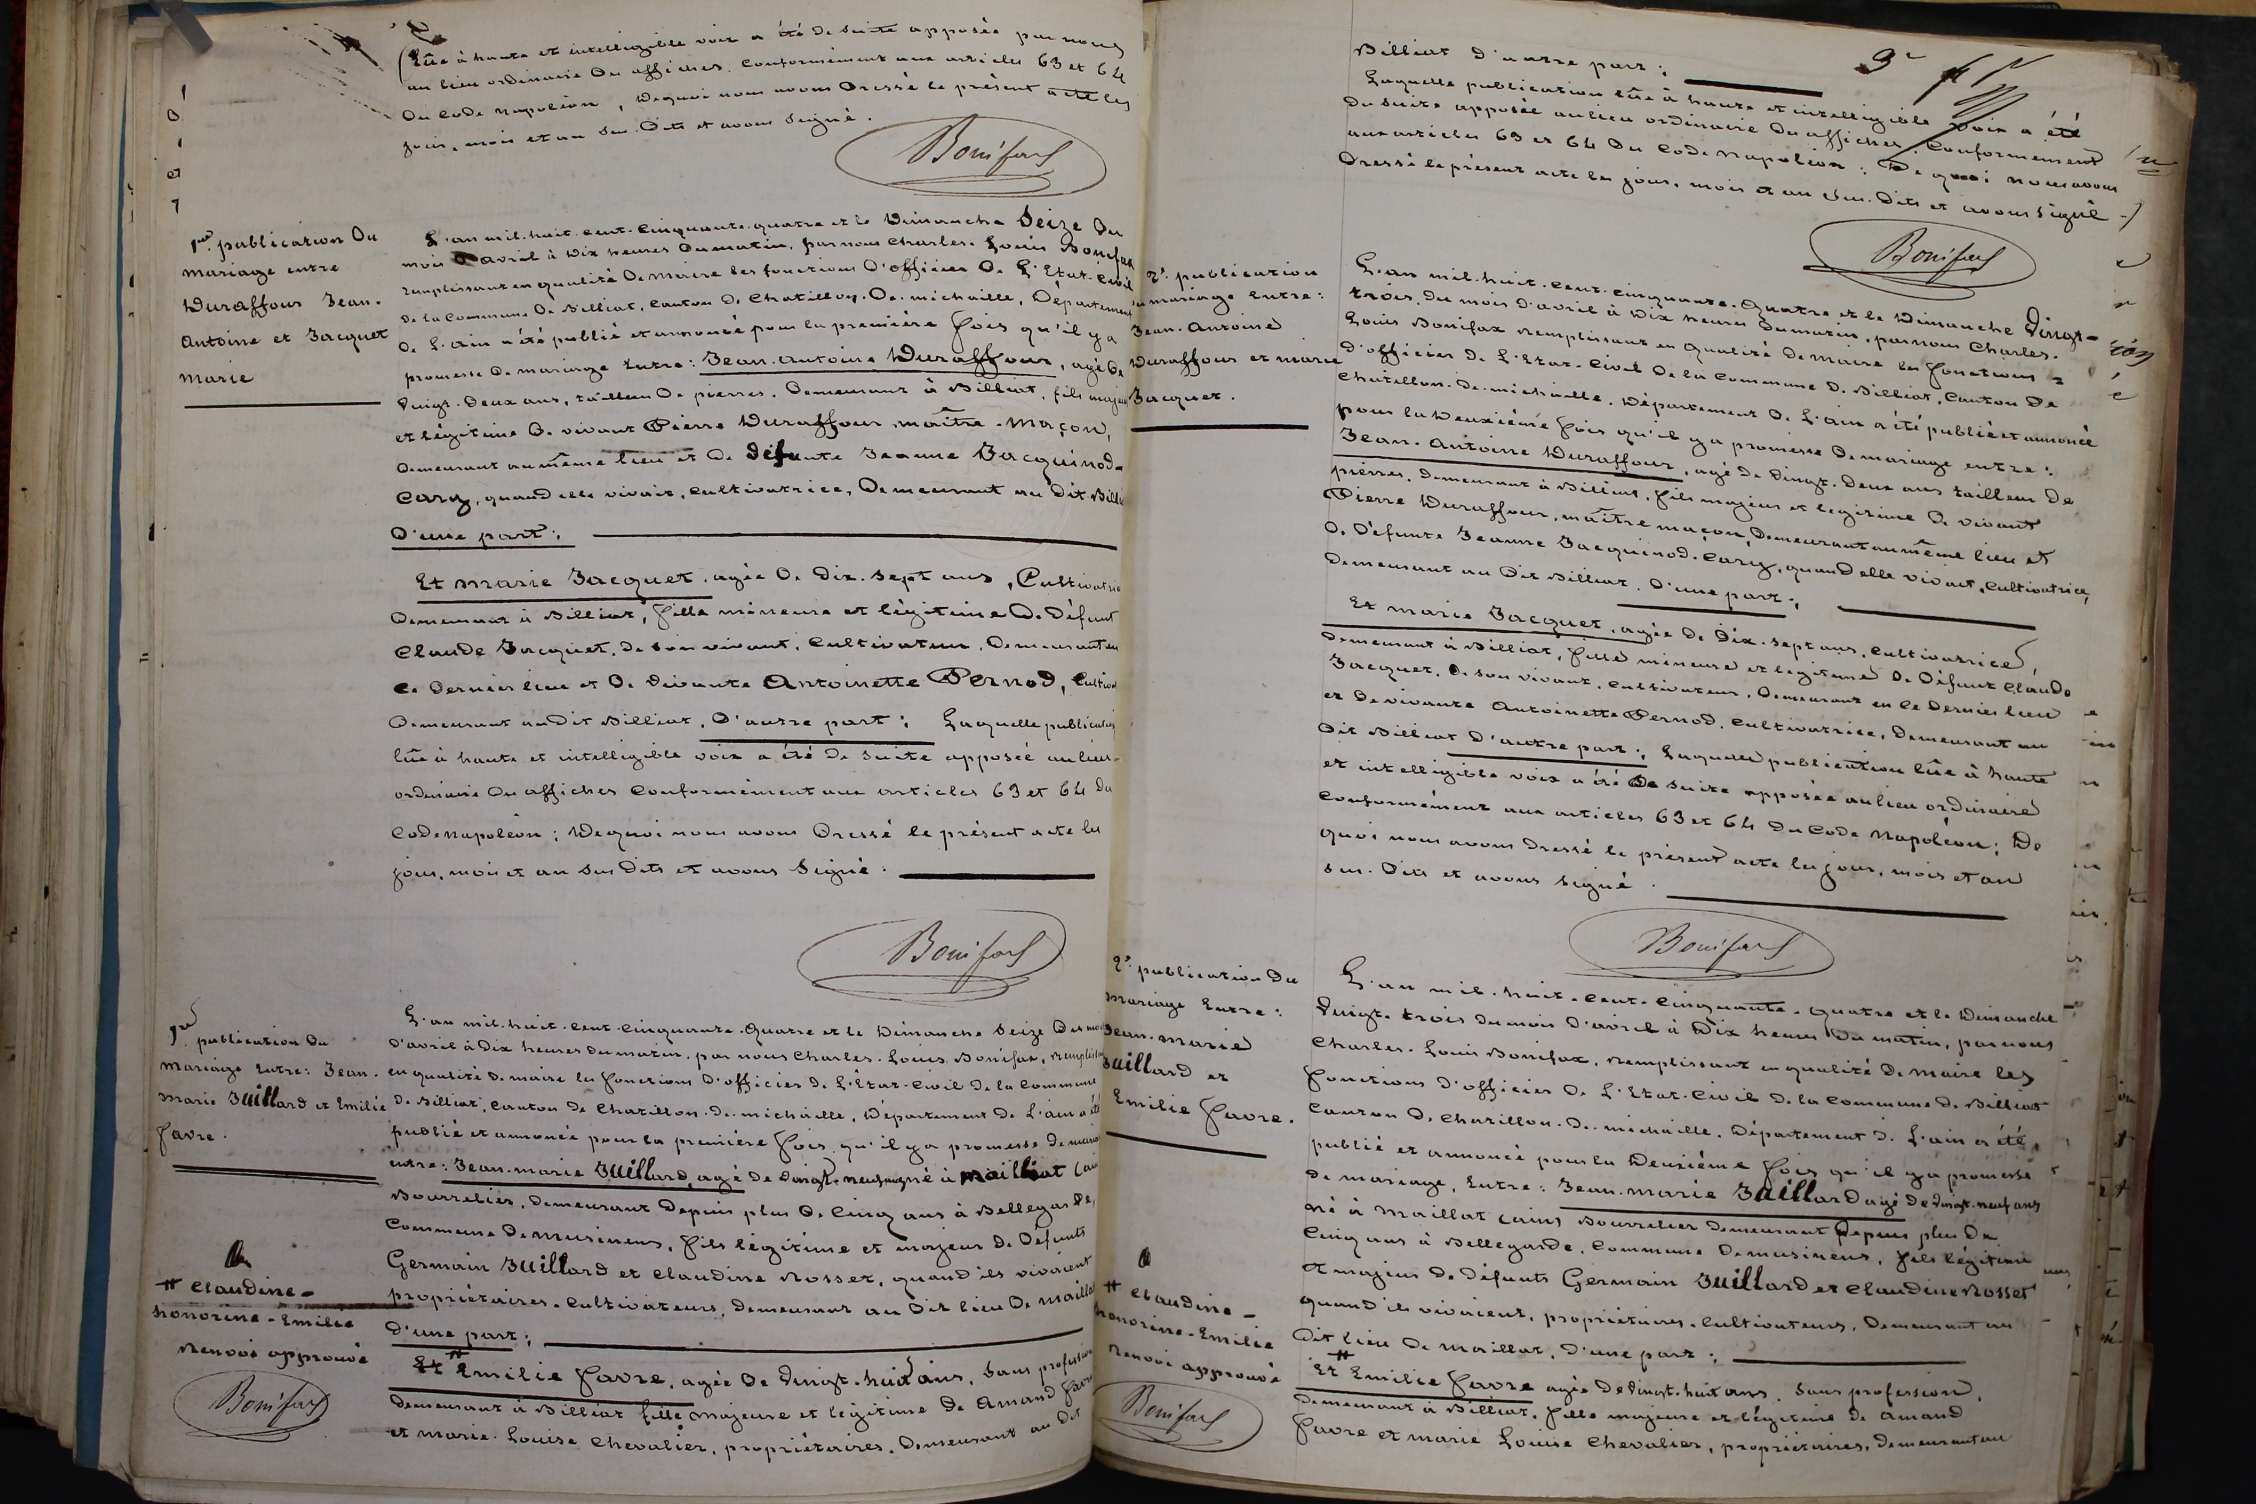 lûe à haute et intelligible voix a été de suite apposée par nous
au lieu ordinaire des affiches conformément aux articles 63 et 64
du Code Napoléon, De quoi nous avons Dressé le présent acte les
jour, mois et an sus-Dits et avons signé.
Bonifax
1re publication du
mariage entre
Duraffour Jean-
Antoine et Jacquet
marie
L'an mil-huit-cent-Cinquante-quatre et le Dimanche Seize du
mois d'avril à Dix heures du matin, par nous Charles-Louis Bonifax
remplissant en qualité De maire les fonctions d'officier De L'Etat-Civil
de la Commune De Billiat, Canton de Chatillon-De-michaille, Département
De L'ain a été publié et annoncé pour la première fois qu'il y a
promesse De mariage Entre : Jean-Antoine Duraffour, agé De
Vingt-Deux ans, tailleur De pierres, Demeurant à Billiat, fils majeur
et légitime De vivant Pierre Duraffour, maître-maçon,
Demeurant au même lieu et De défunte Jeanne Jacquinod-
Cary, quand elle vivait, Cultivatrice, Demeurant au Dit Billiat
D'une part :
Et marie Jacquet, agée De Dix-sept ans, Cultivatrice
Demeurant à Billiat, fille mineure et légitime De Défunt
Claude Jacquet, De son vivant, Cultivateur, Demeurant en
ce Dernier lieu et De vivante Antoinette Pernod, Cultiv
Demeurant au Dit Billiat, D'autre part : Laquelle publication
lûe à haute et intelligible voix a été De suite apposée au lieu-
ordinaire Des affiches Conformément aux articles 63 et 64 Du
Code napoléon : De quoi nous avons Dressé le présent acte les
jour, mois et an sus Dits et avons Signé :
Bonifax
1re publication Du
mariage Entre : Jean-
marie Juillard et Emilie
Favre.
L'an mil-huit-cent-Cinquante-Quatre et le Dimanche Seize Du mois
D'avril à Dix heures du matin, par nous Charles-Louis Bonifax, remplissant
en qualité De maire les fonctions D'officier De L'Etat-Civil De la Commune
De Billiat, Canton De Chatillon-De-michaille, Département De L'ain a été
publié et annoncé pour la première fois qu'il y a promesse De mariage
entre : Jean-marie Juillard, agé De Vingt-neuf ans né à Maillat (ain)
Bourrelier, Demeurant Depuis plus De Cinq ans à Bellegarde,
Commune De musinens, fils légitime et majeur De Défunts
Germain Juillard et Claudine Rosset, quand ils vivaient
propriétaires-Cultivateurs, Demeurant au Dit lieu De maillat
D'une part :
Et # Emilie Favre, agée De Vingt-huit ans, Sans profession
Demeurant à Billiat fille majeure et légitime De Amand Favre
et marie-Louise Chevalier, propriétaires, Demeurant au Dit
# Claudine-
honorine-Emilie
Renvoi approuvé
Bonifax
3e
Billiat D'autre part :
Laquelle publication lûe à haute et intelligible voix a été
De suite apposée au lieu ordinaire Des affiches, Conformément
aux articles 63 et 64 Du Code Napoléon : De quoi nous avons
Dressé le présent acte les jour, mois et an sus-Dits et avons signé.
Bonifax
2e publication
du mariage Entre :
Jean-Antoine
Duraffour et marie
Jacquet.
L'an mil-huit-cent-cinquante-Quatre et le Dimanche Vingt-
trois du mois D'avril à Dix heures Du matin, par nous Charles-
Louis Bonifax remplissant en Qualité De maire les fonctions
D'officier De L'Etat-Civil De la Commune De Billiat, Canton De
Chatillon-De-michaille, Département De L'ain a été publié et annoncé
pour la Deuxième fois qu'il y a promesse De mariage entre :
Jean-Antoine Duraffour, agé De Vingt-Deux ans tailleur De
pierres, Demeurant à Billiat, fils majeur et legitime De vivant
Pierre Duraffour, maître maçon, Demeurant au même lieu et
De Défunte Jeanne Jacquinod-Cary, quand elle vivait, Cultivatrice,
Demeurant au Dit Billiat, D'une part :
Et marie Jacquet, agée De Dix-sept ans, Cultivatrice,
Demeurant à Billiat, fille mineure et legitime De Défunt Claude
Jacquet, De son vivant, Cultivateur, Demeurant en ce Dernier lieu
et De vivante Antoinette Pernod, Cultivatrice, Demeurant au
Dit Billiat D'autre part : Laquelle publication lûe à haute
et intelligible voix a été De suite apposée au lieu ordinaire
Conformément aux articles 63 et 64 Du Code Napoléon ; De
quoi nous avons Dressé le présent acte les jour, mois et an
sus-Dits et avons signé.
Bonifax
2e publication Du
mariage Entre :
Jean-marie
Juillard et
Emilie Favre.
L'an mil-huit-Cent-Cinquante-Quatre et le Dimanche
Vingt-trois du mois D'avril à Dix heures Du matin, par nous
Charles-Louis Bonifax, remplissant en qualité De maire les
fonctions D'officier De L'Etat-Civil De la Commune De Billiat
Canton De Chatillon-De-michaille, Département De L'ain a été
publié et annoncé pour la Deuxième fois qu'il y a promesse
De mariage, Entre : Jean-marie Juillard agé De Vingt-neuf ans
né à Maillat (ain) Bourrelier Demeurant Depuis plus De
Cinq ans à Bellegarde, Commune De musinens, fils légitime
et majeur De Défunts Germain Juillard et Claudine Rosset
quand ils vivaient, propriétaires-Cultivateurs, Demeurant au
Dit lieu De Maillat, D'une part :
Et # Emilie Favre agée De Vingt-huit ans, Sans profession,
Demeurant à Billiat, fille majeure et légitime De Amand
Favre et marie Louise Chevalier, propriétaires, Demeurant au
# Claudine-
honorine-Emilie
Renvoi approuvé
Bonifax